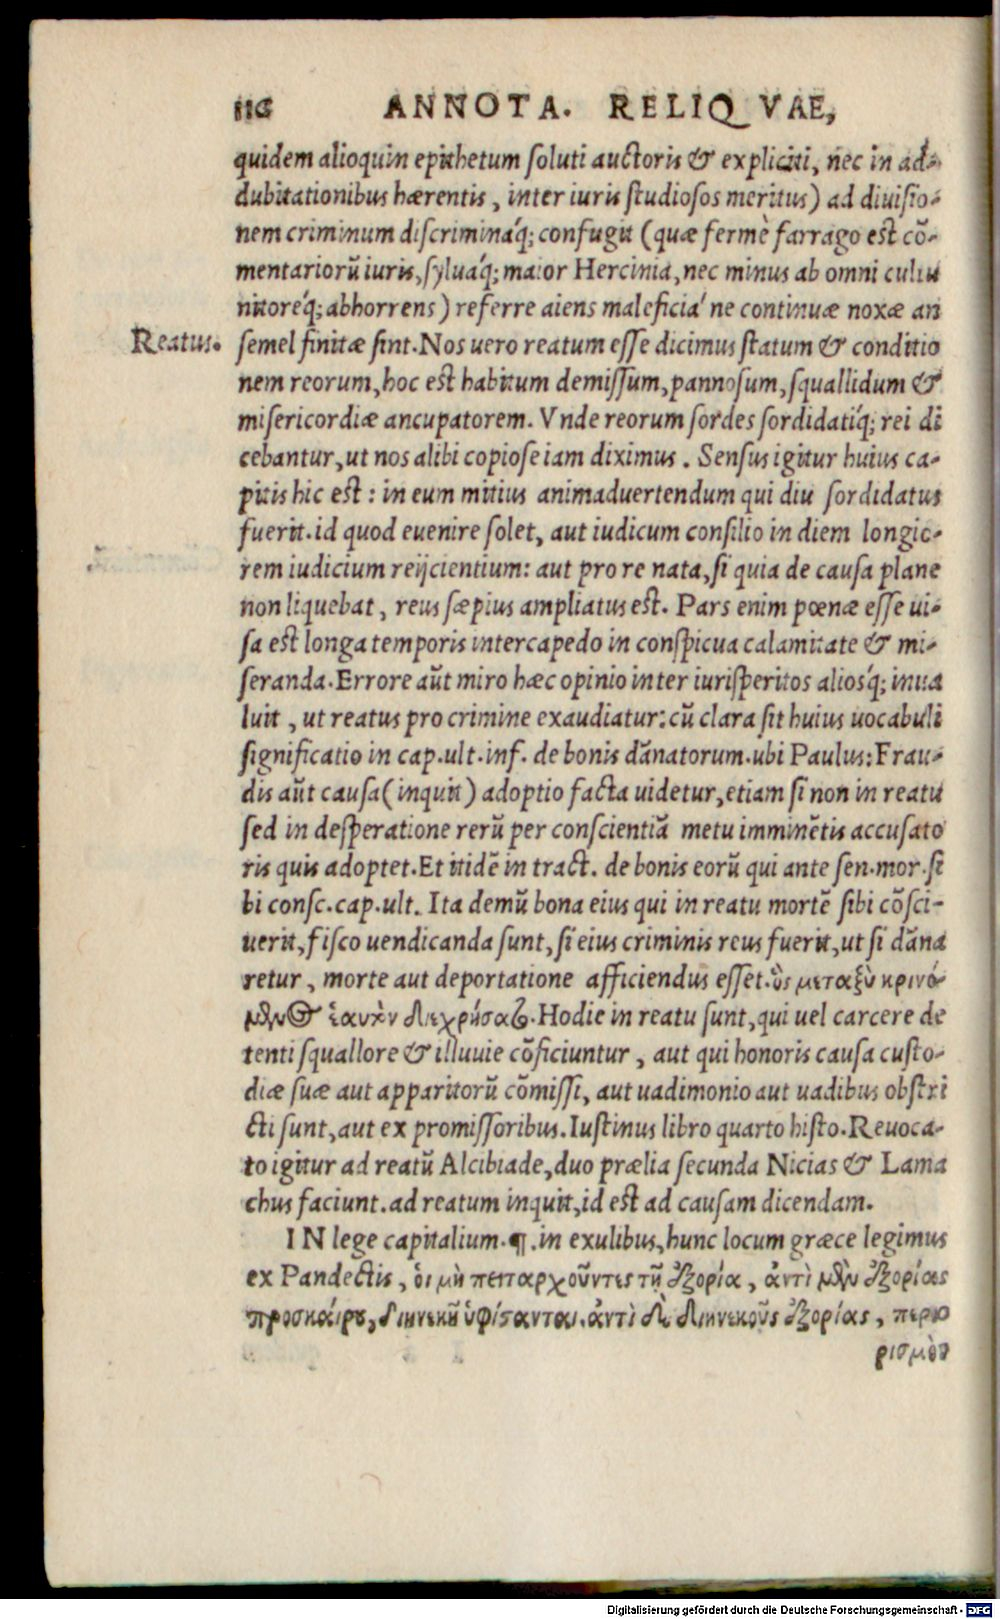 116 ANNOTA. RELIQVAE,
quidem alioquin epithetum soluti auctoris & expliciti, nec in ad-
dubitationibus hærentis, inter iuris studiosos meritus) ad diuisio-
nem criminum discrimináq; confugit (quæ fermè farrago est cõ-
mentariorũ iuris, syluáq; maior Hercinia, nec minus ab omni cultu
nitoréq; abhorrens) referre aiens maleficia ne continuæ noxæ an
Reatus. semel finitæ sint. Nos uero reatum esse dicimus statum & conditio
nem reorum, hoc est habitum demissum, pannosum, squallidum &
misericordiæ ancupatorem. Vnde reorum sordes sordidatíq; rei di
cebantur, ut nos alibi copiose iam diximus. Sensus igitur huius ca-
pitis hic est: in eum mitius animaduertendum qui diu sordidatus
fuerit. id quod euenire solet, aut iudicum consilio in diem longio-
rem iudicium reijcientium: aut pro re nata, si quia de causa plane
non liquebat, reus sæpius ampliatus est. Pars enim pœnæ esse ui-
sa est longa temporis intercapedo in conspicua calamitate & mi-
seranda. Errore aũt miro hæc opinio inter iurisperitos aliósq; inua
luit, ut reatus pro crimine exaudiatur: cũ clara sit huius uocabuli
significatio in cap. ult. inf. de bonis dãnatorum. ubi Paulus: Frau-
dis aũt causa (inquit) adoptio facta uidetur, etiam si non in reatu
sed in desperatione rerũ per conscientiã metu imminẽtis accusato
ris quis adoptet. Et itidẽ in tract. de bonis eorũ qui ante sen. mor. si
bi consc. cap. ult. Ita demũ bona eius qui in reatu mortẽ sibi cõsci-
uerit, fisco uendicanda sunt, si eius criminis reus fuerit, ut si dãna
retur, morte aut deportatione afficiendus esset. ὃς μεταξὺ κρινό-
μενος ἑαυτὸν διεχρήσατο. Hodie in reatu sunt, qui uel carcere de
tenti squallore & illuuie cõficiuntur, aut qui honoris causa custo-
diæ suæ aut apparitorũ cõmissi, aut uadimonio aut uadibus obstri
cti sunt, aut ex promissoribus. Iustinus libro quarto histo. Reuoca-
to igitur ad reatũ Alcibiade, duo prælia secunda Nicias & Lama
chus faciunt. ad reatum inquit, id est ad causam dicendam.
IN lege capitalium. ¶. in exulibus, hunc locum græce legimus
ex Pandectis, ὁι μὴ πειταρχοῦντες τῇ ἐξορία, ἀντὶ μὲν ἐξορίας
προσκαίρου, διηνεκῆ ὑφίσανται. ἀντὶ δὲ διηνεκοῦς ἐξορίας, περιο
ρισμὸν
Digitalisierung gefördert durch die Deutsche Forschungsgemeinschaft - DFG